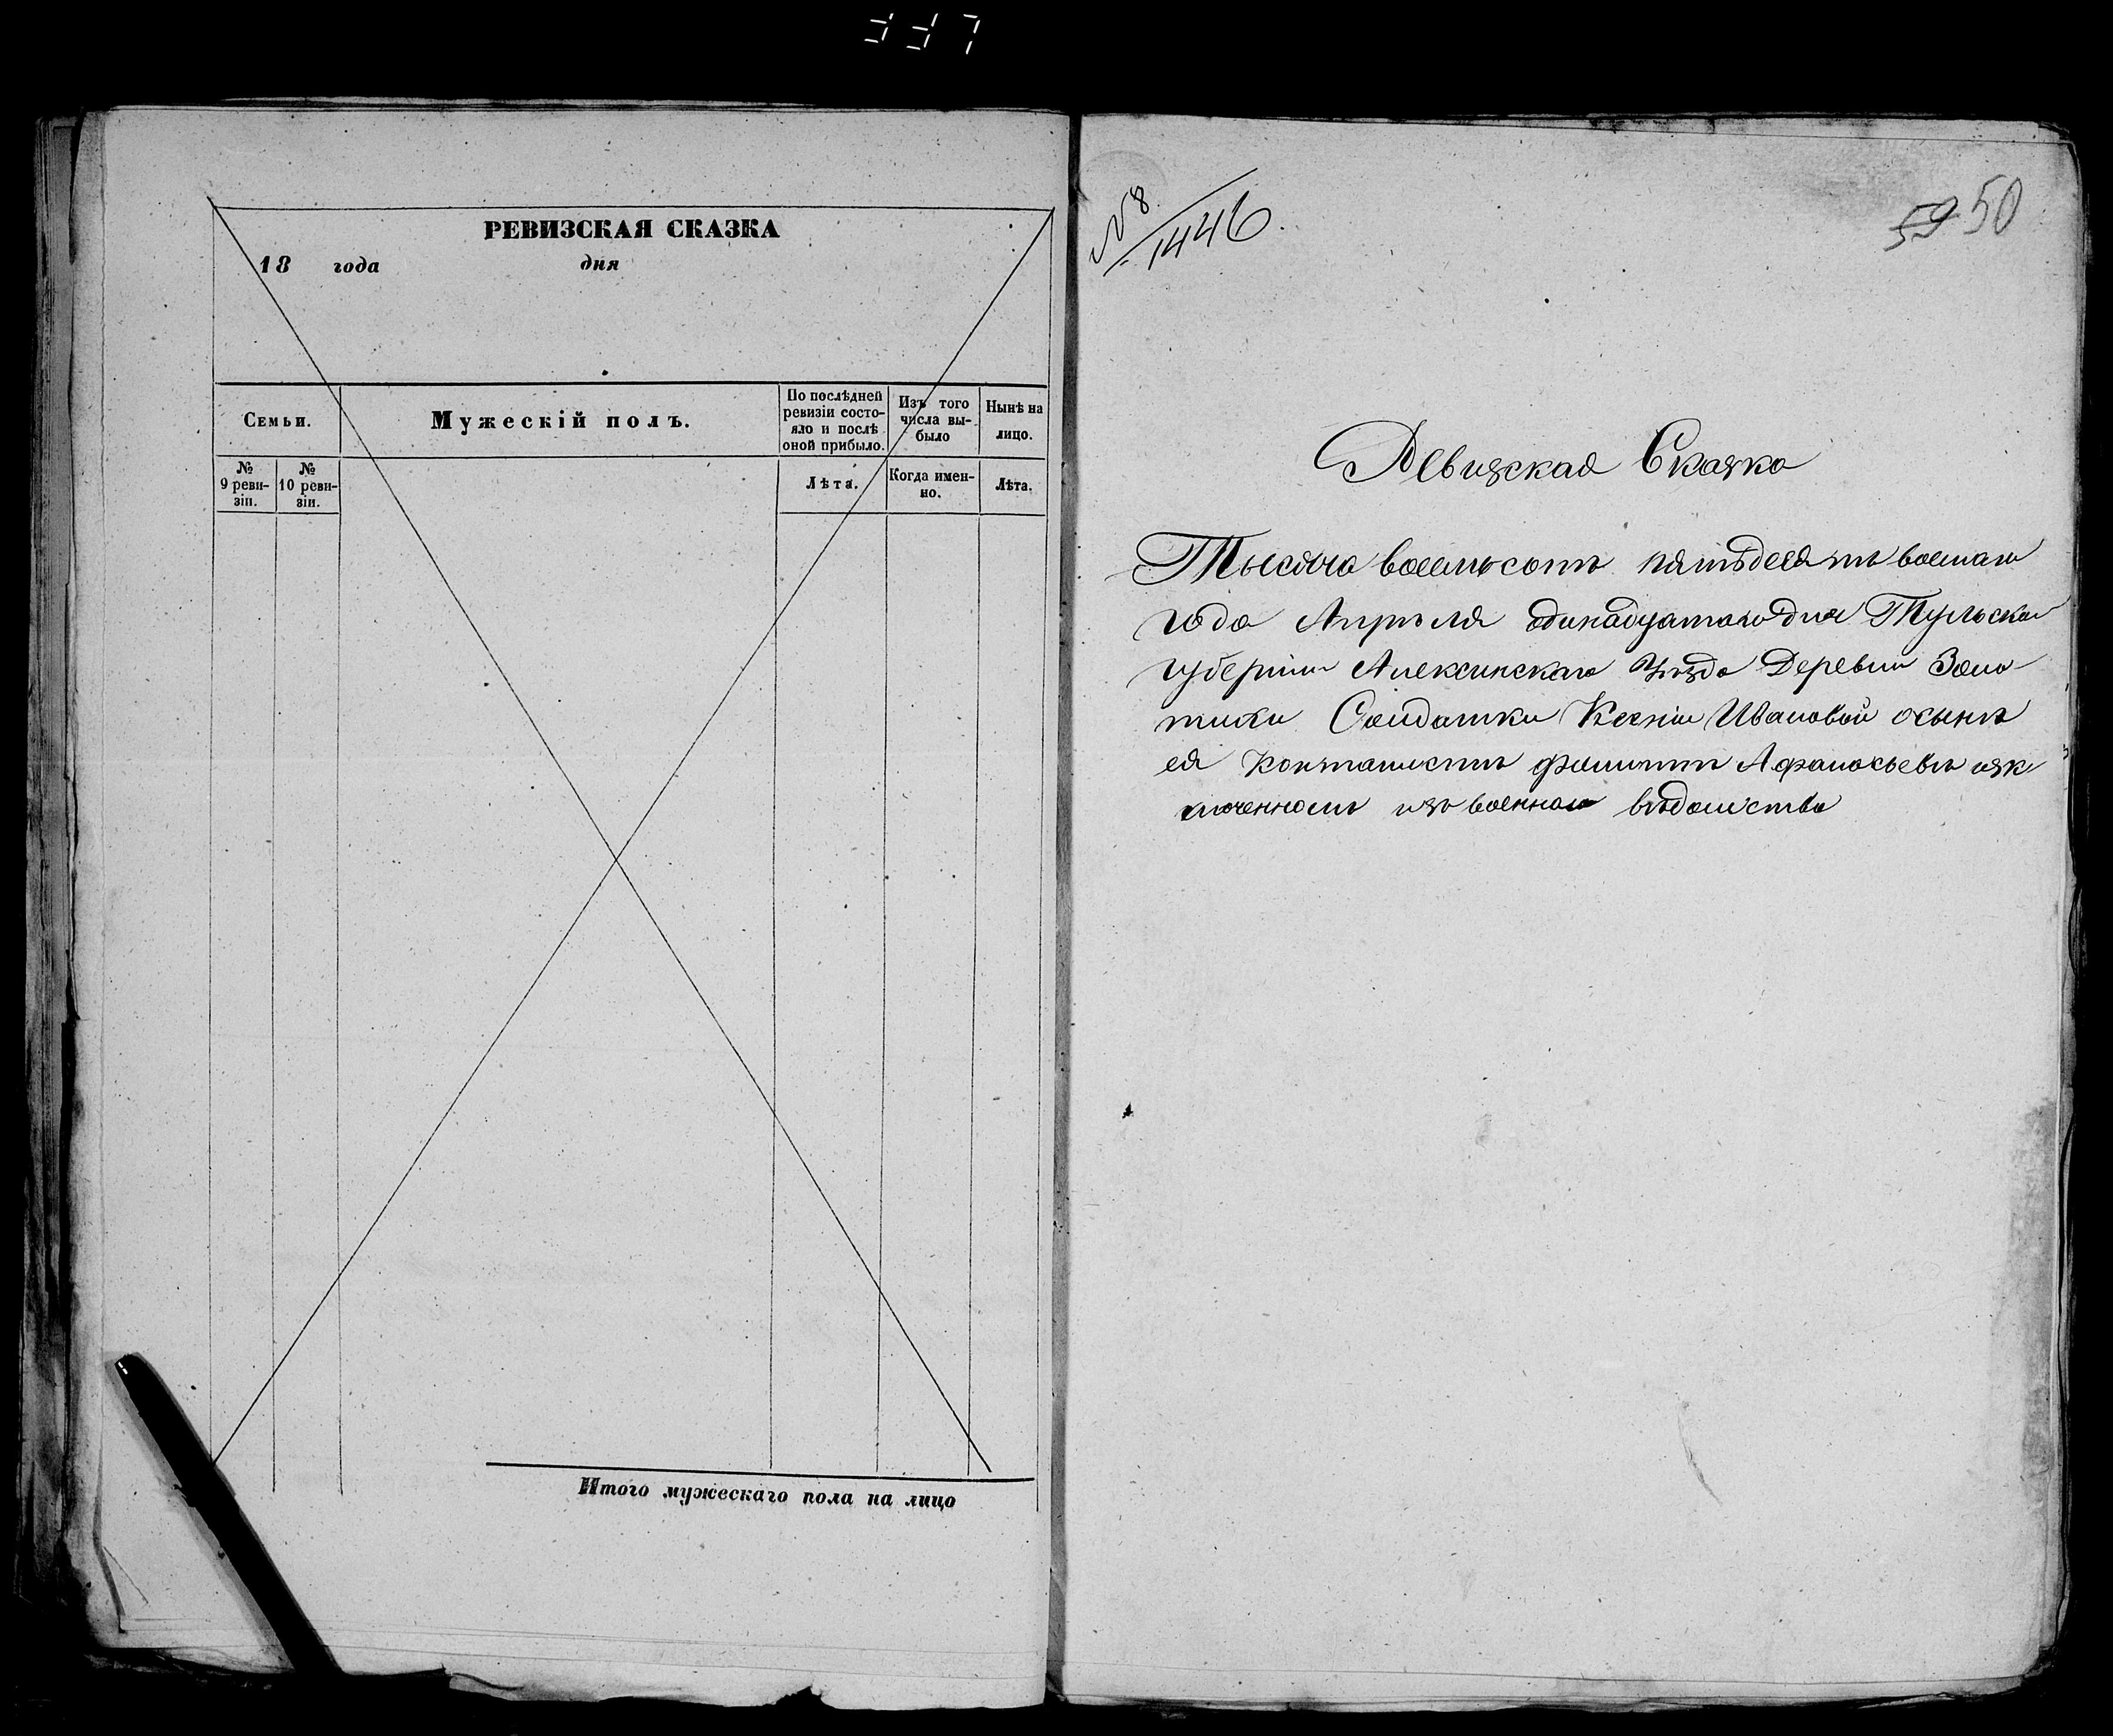 337
РЕВИЗСКАЯ СКАЗКА
18 года дня
Семьи.
Мужескій полъ.
По послѣдней ревизіи состо-
яло и послѣ оной прибыло.
Изъ того числа вы-
было
Нынѣ на лицо.
№ 9 реви-
зіи.
№ 10 реви-
зіи.
Лѣта.
Когда имен-
но.
Лѣта.
Итого мужескаго пола на лицо
№ 8
1446.
59 50
Ревизская Сказка
Тысяча восемьсотъ пятьдесятъ восмаго
года Апрѣля одинадцатаго дня Тульской
губерніи Алексинскаго Уѣзда Деревни
Солдатки Ксеніи Ивановой о сынѣ
ея Кантанистѣ Филиппѣ Афанасьевѣ изк
люченномъ изъ военнаго вѣдомства